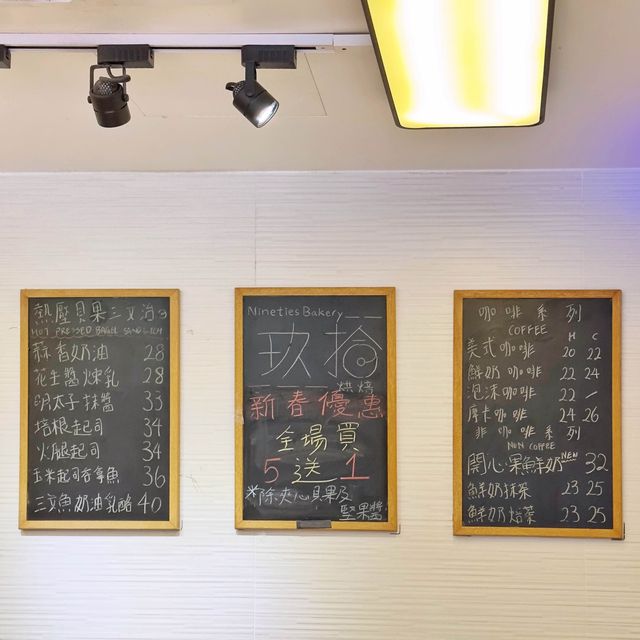 熱壓貝果三文治
HOT PRESSED BAGEL SANDWICH
蒜香奶油 28
花生醬煉乳 28
明太子抹醬 33
培根起司 34
火腿起司 34
玉米起司吞拿魚 36
三文魚奶油乳酪 40
Nineties Bakery
玖拾
烘焙
新春優惠
全場買
5送1
*除夾心貝果及
堅果醬
咖啡系列
COFFEE H C
美式咖啡 20 22
鮮奶咖啡 22 24
泡沫咖啡 22 /
摩卡咖啡 24 26
非咖啡系列
NON COFFEE
開心果鮮奶 NEW 32
鮮奶抹茶 23 25
鮮奶焙茶 23 25